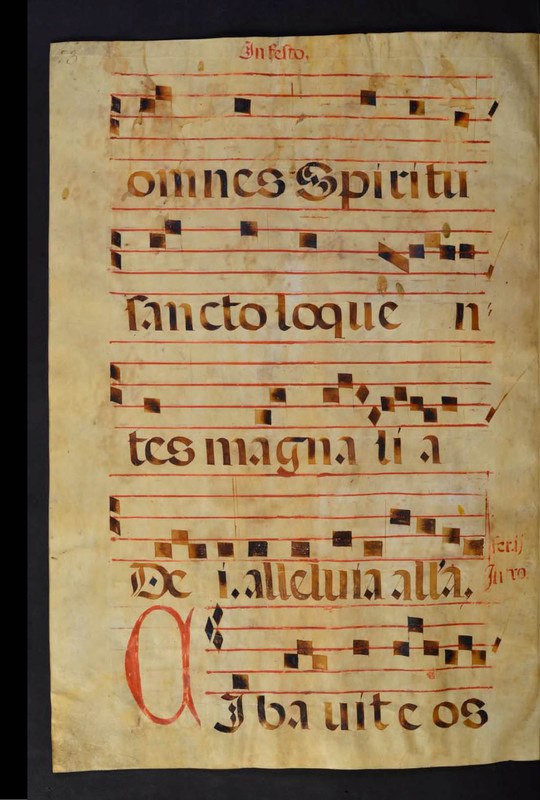 In festo.
omnes Spiritu
sancto loque n
tes magna li a
De i. alleluia all'a.
CIbauit e os